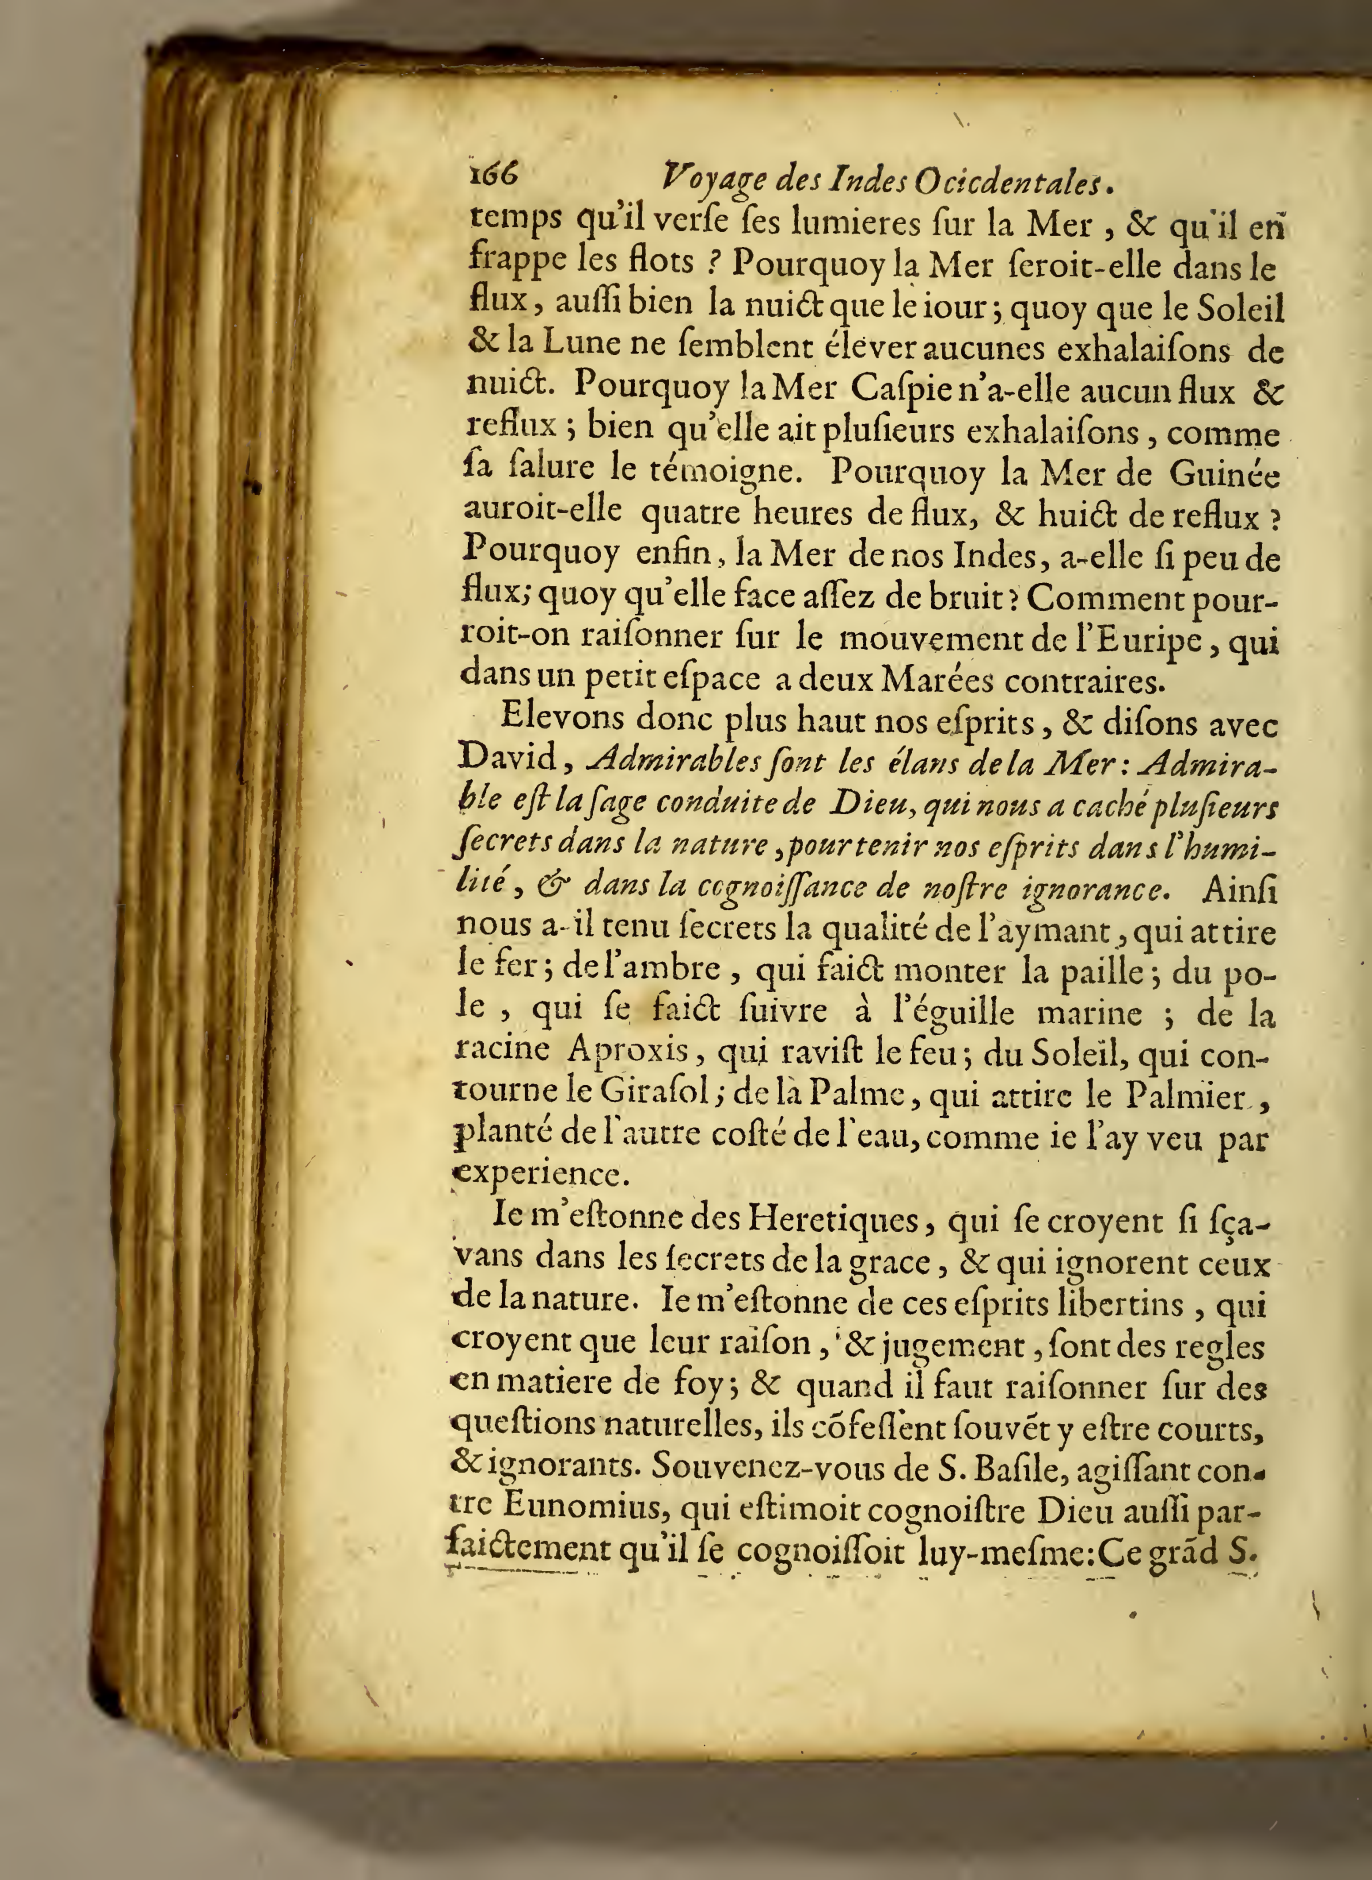 166 Voyage des Indes Ocicdentales.
temps qu'il verſe ſes lumieres ſur la Mer, & qu'il en
frappe les flots ? Pourquoy la Mer ſeroit-elle dans le
flux, auſſi bien la nuict que le iour; quoy que le Soleil
& la Lune ne ſemblent élever aucunes exhalaiſons de
nuict. Pourquoy la Mer Caſpie n'a-elle aucun flux &
reflux; bien qu'elle ait pluſieurs exhalaiſons, comme
ſa ſalure le témoigne. Pourquoy la Mer de Guinée
auroit-elle quatre heures de flux, & huict de reflux ?
Pourquoy enfin, la Mer de nos Indes, a-elle ſi peu de
flux; quoy qu'elle face aſſez de bruit ? Comment pour-
roit-on raiſonner ſur le mouvement de l'Euripe, qui
dans un petit eſpace a deux Marées contraires.
Elevons donc plus haut nos eſprits, & diſons avec
David, Admirables ſont les élans de la Mer: Admira-
ble eſt la ſage conduite de Dieu, qui nous a caché pluſieurs
ſecrets dans la nature, pour tenir nos eſprits dans l'humi-
lité, & dans la cognoiſſance de noſtre ignorance. Ainſi
nous a-il tenu ſecrets la qualité de l'aymant, qui attire
le fer; de l'ambre, qui faict monter la paille; du po-
le, qui ſe faict ſuivre à l'éguille marine; de la
racine Aproxis, qui raviſt le feu; du Soleil, qui con-
tourne le Giraſol; de la Palme, qui attire le Palmier,
planté de l'autre coſté de l'eau, comme ie l'ay veu par
experience.
Ie m'eſtonne des Heretiques, qui ſe croyent ſi ſça-
vans dans les ſecrets de la grace, & qui ignorent ceux
de la nature. Ie m'eſtonne de ces eſprits libertins, qui
croyent que leur raiſon, & jugement, ſont des regles
en matiere de foy; & quand il faut raiſonner ſur des
queſtions naturelles, ils cõfeſſent ſouvẽt y eſtre courts,
& ignorants. Souvenez-vous de S. Baſile, agiſſant con-
tre Eunomius, qui eſtimoit cognoiſtre Dieu auſſi par-
faictement qu'il ſe cognoiſſoit luy-meſme: Ce grãd S.